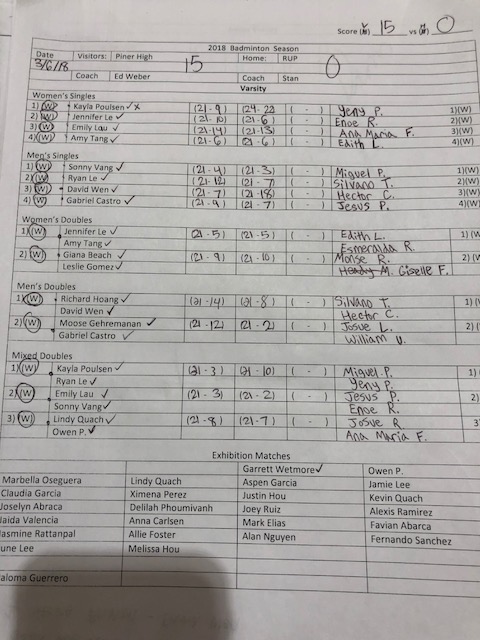 Score (V) 15 vs (H) 0
2018 Badminton Season
Date 3/6/18 Visitors: Piner High 15 Home: RUP 0
Coach Ed Weber Coach Stan
Varsity
Women's Singles
1) (W) Kayla Poulsen ✓x (21 - 9) (24 - 22) ( - ) Yeny P. 1)(W)
2) (W) Jennifer Le ✓ (21 - 10) (21 - 6) ( - ) Enoe R. 2)(W)
3) (W) Emily Lau ✓ (21 - 14) (21 - 13) ( - ) Ana Maria F. 3)(W)
4) (W) Amy Tang ✓ (21 - 6) (21 - 6) ( - ) Edith L. 4)(W)
Men's Singles
1) (W) Sonny Vang ✓ (21 - 4) (21 - 3) ( - ) Miguel P. 1)(W)
2) (W) Ryan Le ✓ (21 - 12) (21 - 7) ( - ) Silvano T. 2)(W)
3) (W) David Wen ✓ (21 - 7) (21 - 18) ( - ) Hector C. 3)(W)
4) (W) Gabriel Castro ✓ (21 - 9) (21 - 7) ( - ) Jesus P. 4)(W)
Women's Doubles
1) (W) Jennifer Le ✓ (21 - 5) (21 - 5) ( - ) Edith L. 1) (W
Amy Tang ✓ Esmeralda R.
2) (W) Giana Beach ✓ (21 - 9) (21 - 10) ( - ) Monse R. 2) (W
Leslie Gomez ✓ M. Giselle F.
Men's Doubles
1) (W) Richard Hoang ✓ (21 - 14) (21 - 8) ( - ) Silvano T. 1) (
David Wen ✓ Hector C.
2) (W) Moose Gehremanan ✓ (21 - 12) (21 - 2) ( - ) Josue L. 2) (
Gabriel Castro ✓ William V.
Mixed Doubles
1) (W) Kayla Poulsen ✓ (21 - 3) (21 - 10) ( - ) Miguel P. 1)
Ryan Le ✓ Yeny P.
2) (W) Emily Lau ✓ (21 - 3) (21 - 2) ( - ) Jesus P. 2)
Sonny Vang ✓ Enoe R.
3) (W) Lindy Quach ✓ (21 - 8) (21 - 7) ( - ) Josue R 3
Owen P. ✓ Ana Maria F.
Exhibition Matches
Garrett Wetmore ✓ Owen P.
Marbella Oseguera Lindy Quach Aspen Garcia Jamie Lee
Claudia Garcia Ximena Perez Justin Hou Kevin Quach
Joselyn Abraca Delilah Phoumivanh Joey Ruiz Alexis Ramirez
Jaida Valencia Anna Carlsen Mark Elias Favian Abarca
Jasmine Rattanpal Allie Foster Alan Nguyen Fernando Sanchez
une Lee Melissa Hou
aloma Guerrero